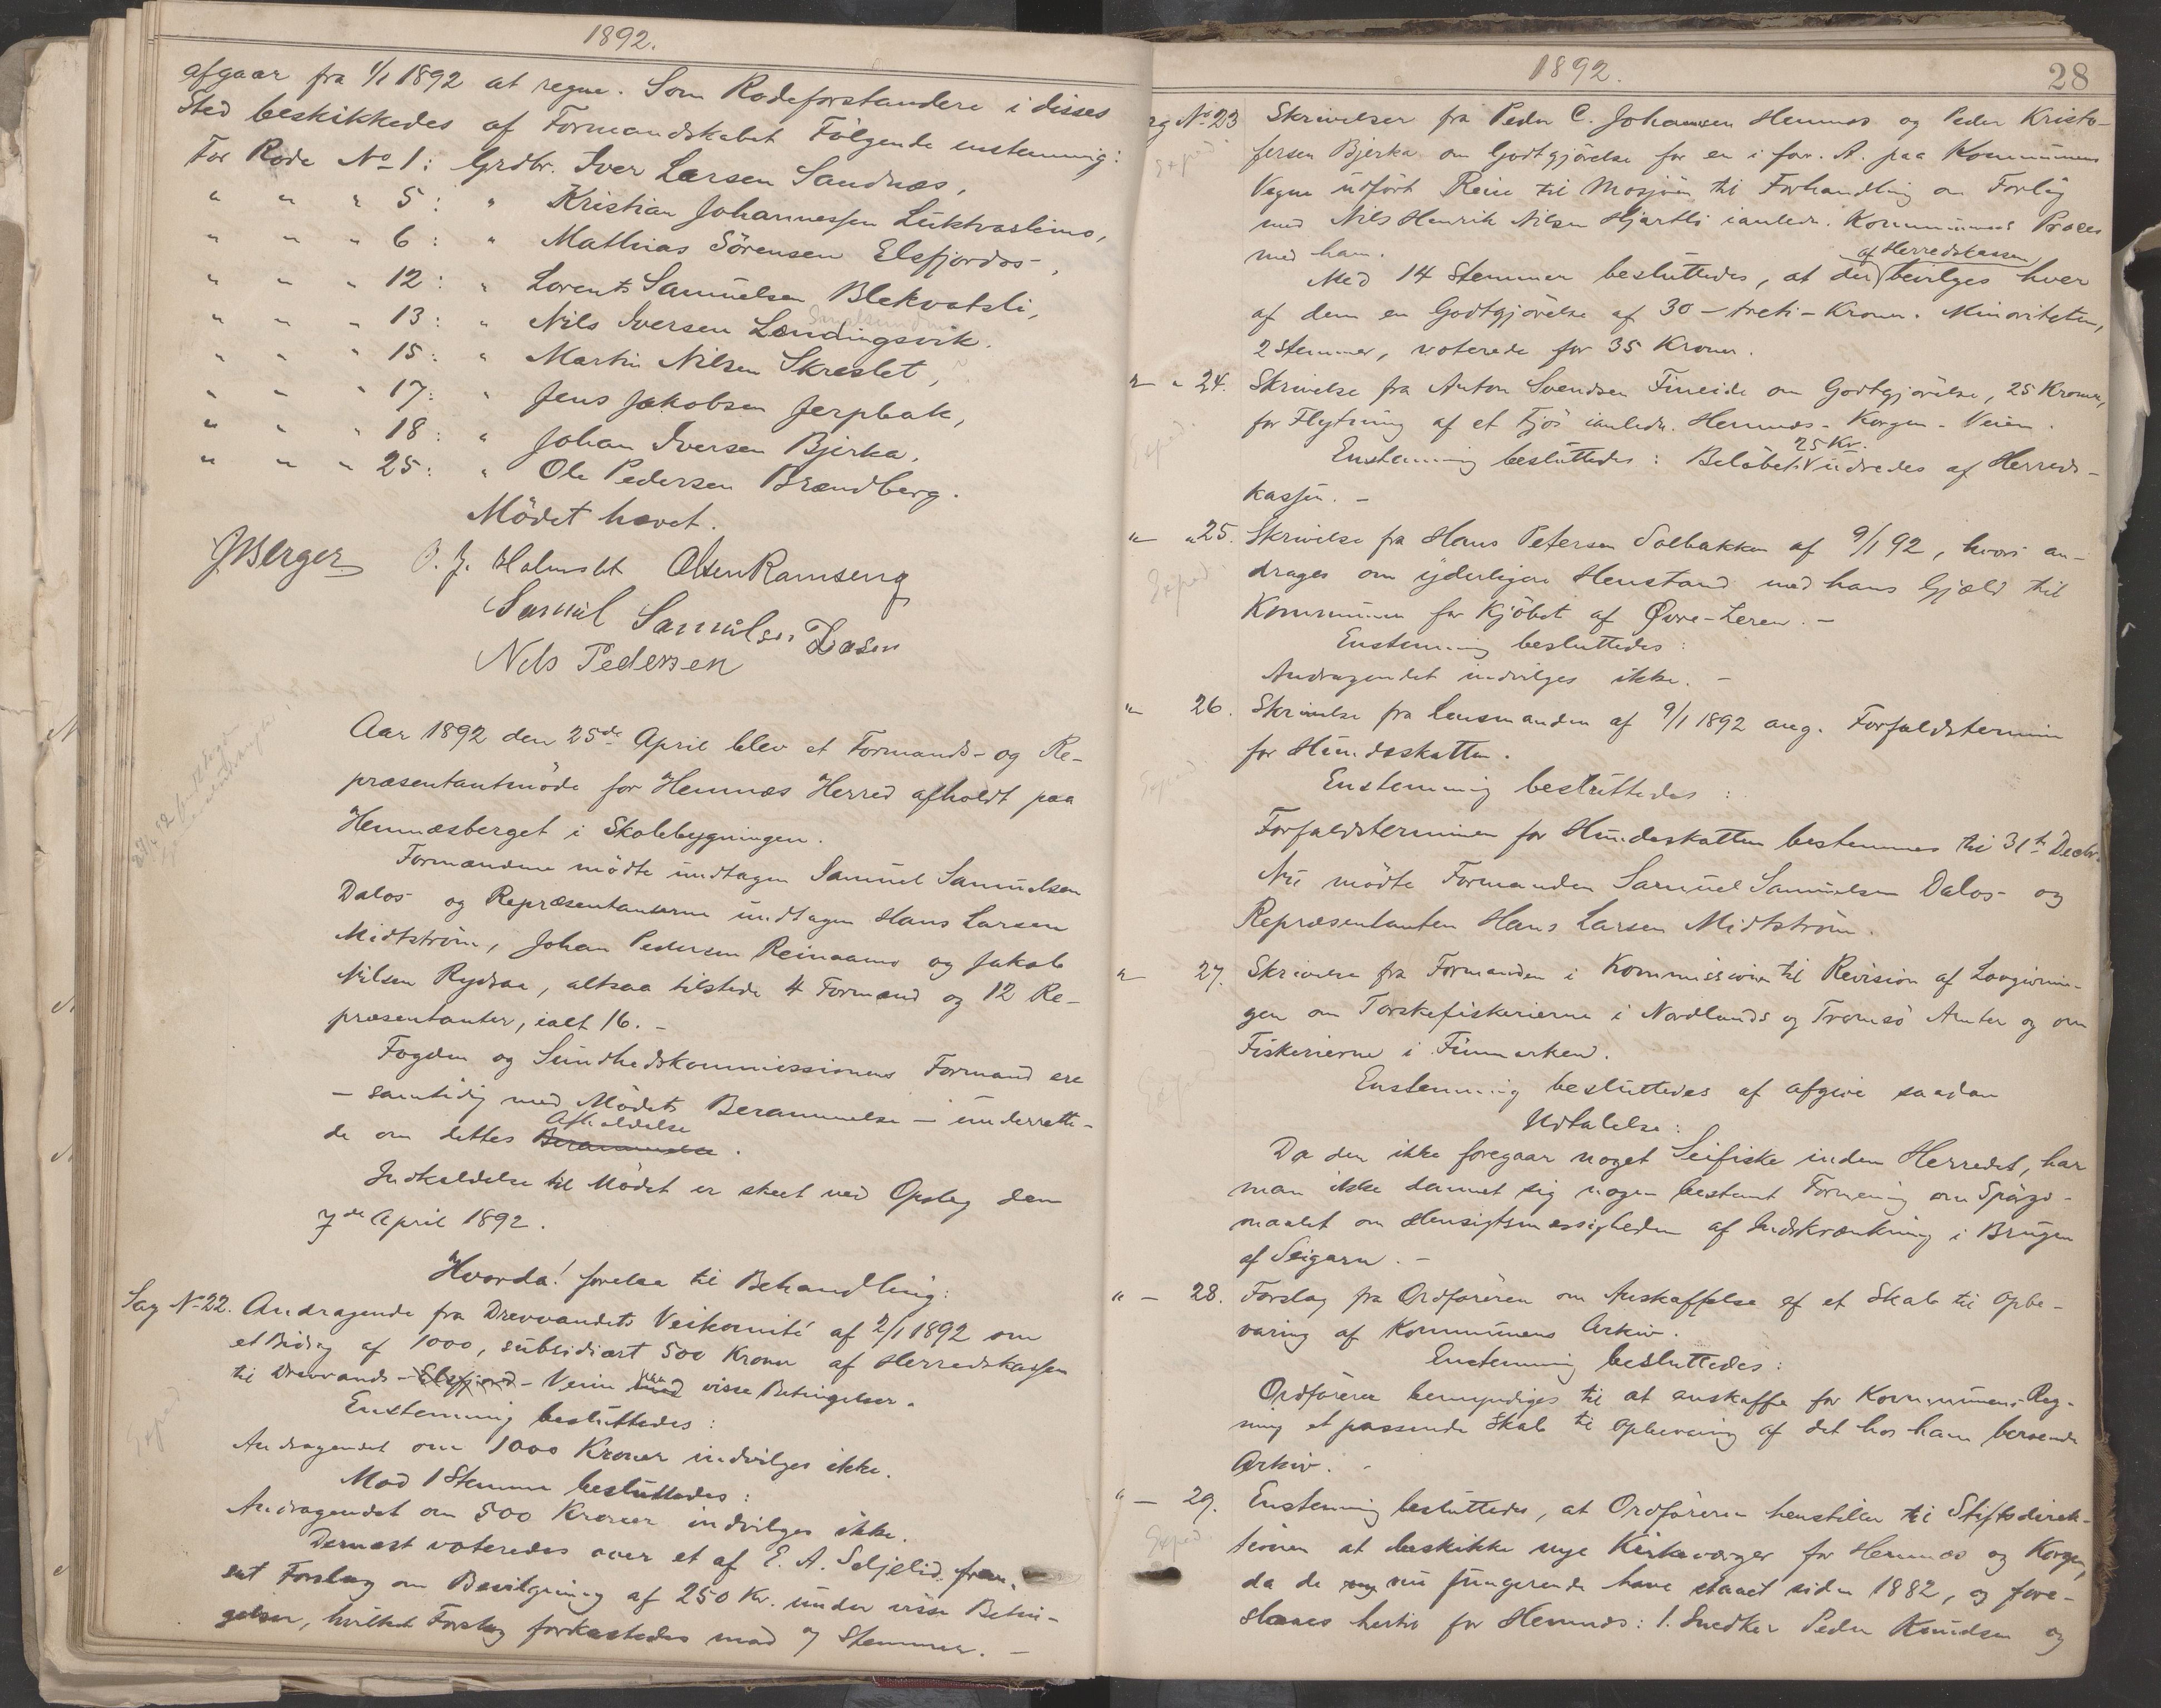 1892.
afgaar fra 1/1 1892 at regne. Som Rodeforstandere i disses
Sted beskikkedes af Formandskabet Følgende enstemmig:
For Rode No 1: Grdbr. Iver Larsen Sandnæs,
" " " 5: " Kristian Johannessen Luktvasleimo,
" " " 6: " Mathias Sörensen Elsfjordos,
" " " 12: " Lorents Samuelsen Blekvatsli,
" " " 13: " Nils Iversen Lændingsvik.
" " " 15: " Martin Nilsen Skreslet,
" " " 17: " Jens Jakobsen Jerpbak,
" " " 18: " Johan Iversen Bjerka,
" " " 25: " Ole Pedersen Brændberg.
Mödet hævet.
JBerger P. J. Holmslet Olsen Ramseng
Samuel Samuelsen Dalos
Nels Pedersen
Aar 1892 den 25de April blev et Formands- og Re-
præsentantmöde for Hemnæs Herred afholdt paa
Hemnæsberget i Skolebygningen.
Formændene mödte undtagen Samuel Samuelsen
Dalos og Repræsentanterne undtagen Hans Larsen
Midtström, Johan Pedersen Reinaamo og Jakob
Nilsen Rydsaa, altsaa tilstede 4 Formænd og 12 Re-
præsentanter, ialt 16. -
Fogden og Sundhedskommissionens Formand ere
- samtidig med Mödets Berammelse - underrette-
de om dettes Berammelse Afholdelse.
Indkaldelse til Mödet er skeet ved Opslag den
7de April 1892.
Hvorda! forelaa til Behandling:
Sag No 22. Andragende fra Drevvandets Veikomité af 2/1 1892 om
et Bidrag af 1000, subsidiært 500 Kroner af Herredskassen
til Drevvands-Elsfjord-Veien visse Betingelser.
Exped
Enstemmig besluttedes:
Andragendet om 1000 Kroner indvilges ikke.
Mod 1 Stemme besluttedes:
Andragendet om 500 Kroner indvilges ikke.
Dernæst voteredes over et af E. A. Seljelid frem-
sat Forslag om Bevilgning af 250 Kr. under visse Betin-
gelser, hvilket Forslag forkastedes mod 7 Stemmer. -
1892.
28
Sag No 23 Skrivelser fra Peder C. Johansen Hemnæs og Peder Kristo-
fersen Bjerka om Godtgjörelse for en i forr. A. paa Kommunens
Exped.
Vegne udfört Reise til Mosjöen til Forhandling om Forlig
med Nils Henrik Nilsen Hjartli ianledn. Kommunens Proces
med ham.
Med 14 Stemmer besluttedes, at der af Herredskassen bevilges hver
af dem en Godtgjörelse af 30 - treti - Kroner. Minoriteten,
2 Stemmer, voterede for 35 Kroner.
" - " 24. Skrivelse fra Anton Svendsen Fineide om Godtgjörelse, 25 Kroner,
for Flytning af et Fjös ianledn. Hemnæs-Korgen-Veien.
Exped.
Enstemmig besluttedes: Belöbet 25 Kr. udredes af Herreds-
kassen. -
" - " 25. Skrivelse fra Hans Petersen Solbakken af 9/1 92, hvori an-
drages om yderligere Henstand med hans Gjæld til
Exped.
Kommunen for Kjöbet af Øvre-Leren. -
Enstemmig besluttedes:
Andragendet indvilges ikke. -
" 26. Skrivelse fra Lensmanden af 9/1 1892 ang. Forfaldstermin
for Hundeskatten.
Exped.
Enstemmig besluttedes:
Forfaldsterminen for Hundeskatten bestemmes til 31te Decbr.
Nu mödte Formanden Samuel Samuelsen Dalos og
Repræsentanten Hans Larsen Midtström.
" 27. Skrivelse fra Formanden i Kommissionen til Revision af Lovgivnin-
gen om Torskefiskerierne i Nordlands og Tromsö Amter og om
Fiskerierne i Finmarken.
Exped.
Enstemmig besluttedes af afgive saadan
Udtalelse:
Da der ikke foregaar noget Seifiske inden Herredet, har
man ikke dannet sig nogen bestemt Formening om Spörgs-
maalet om Hensigtsmæssigheden af Indskrænkning i Brugen
af Seigarn. -
" - 28. Forslag fra Ordföreren om Anskaffelse af et Skab til Opbe-
varing af Kommunens Arkiv.
Enstemmig besluttedes:
Ordföreren bemyndiges til at anskaffe for Kommunens Reg-
ning et passende Skab til Opbevaring af det hos ham beroende
Arkiv. -
" - 29. Enstemmig besluttedes, at Ordföreren henstiller til Stiftsdirek-
tionen at beskikke nye Kirkeværger for Hemnæs og Korgen,
Exped.
da de nu fungerende have staaet siden 1882, og fore-
slaaes hertil for Hemnæs: 1. Snedker Peder Knudsen og